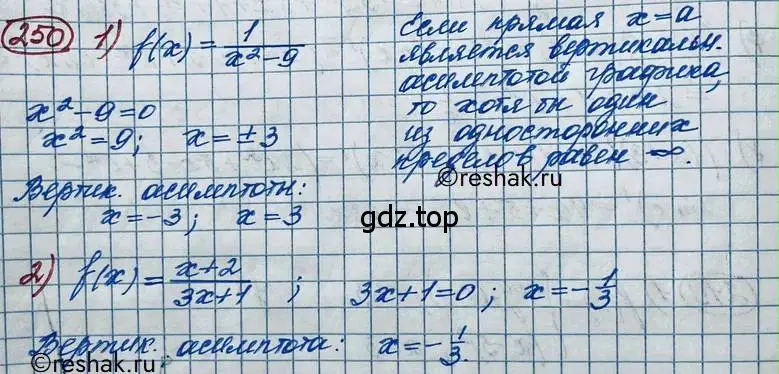 250 1) f(x) = 1/(x² - 9)
x² - 9 = 0
x² = 9; x = ± 3
Вертик. асимптоты:
x = -3; x = 3
Если прямая x = a
является вертикальн.
асимптотой графика,
то хотя бы один
из односторонних
пределов равен ∞.
©reshak.ru
gdz.top
2) f(x) = (x+2)/(3x+1) ; 3x+1=0; x = -1/3
Вертик. асимптота: x = -1/3.
©reshak.ru